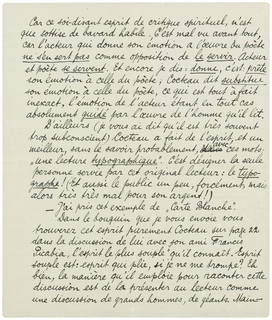 Car ce soi-disant esprit de critique spirituel, n'est
que sottise de bavard habile. C'est mal vu avant tout,
car l'acteur qui donne son émotion à l'œuvre du poète
ne s'en sert pas comme opposition de le servir. Acteur
et poète se servent. Et encore je dis: donne, c'est prête
son émotion à celle du poète, Cocteau dit substitue
son émotion à celle du poète, ce qui est tout à fait
inexact, l'émotion de l'acteur étant en tout cas
absolument guidé par l'œuvre de l'homme qu'il lit.
D'ailleurs (je vous ai dit qu'il est très souvent
trop subconscient) Cocteau a fait de l'esprit, et un
meilleur, sans le savoir probablement, avec ces mots:
"une lecture typographique". C'est désigner la seule
personne servie par cet original lecteur: le typo-
graphe! (Et aussi le public un peu, forcément, mais
alors très très mal pour son argent!)
— J'ai pris cet exemple de "Carte Blanche".
Dans le bouquin que je vous envoie vous
trouverez cet esprit purement Cocteau sur page 22
dans la discussion de lui avec son ami Francis
Picabia, "l'esprit le plus souple" qu'il connaît. Esprit
souple est: esprit qui plie, si je ne me trompe? Eh
bien, la manière qu'il emploie pour raconter cette
discussion est de la présenter au lecteur comme
une discussion de grands hommes, de géants. Main-